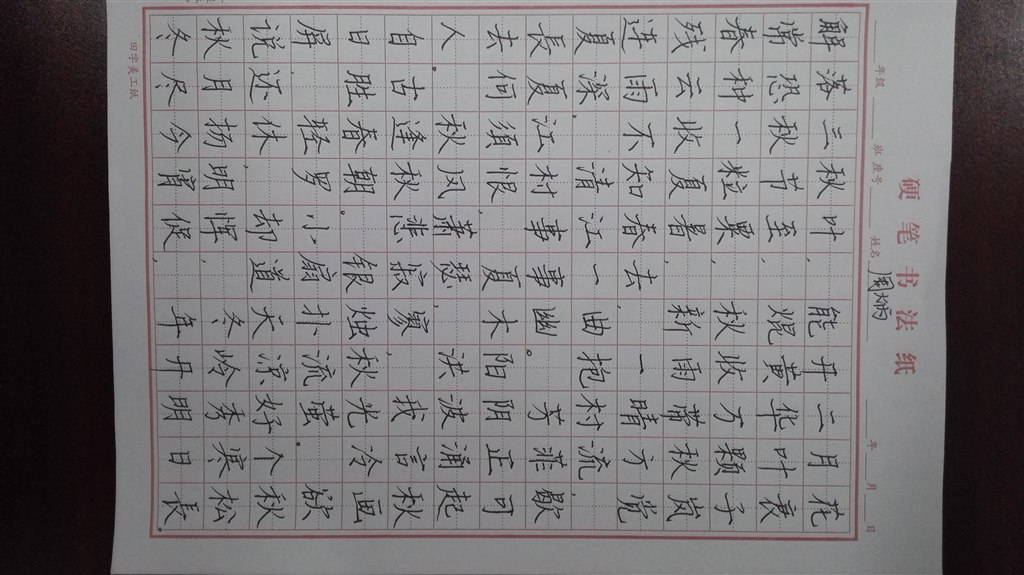 硬笔书法纸
年级 班 座号 姓名 周炳 年 月 日
解落三秋叶,能开二月花
常热秋节至,焜黄华叶衰
春种一粒粟,秋收万颗子
残云收夏暑,新雨带秋岚
连雨不知春去,一晴方觉
夏深,清江一曲抱村流,
長夏江村事事幽。芳菲歇
去何須恨,夏木阳阴正可
人。秋风萧瑟,洪波涌起
自古逢秋悲寂寥,我言秋
日胜春朝。银烛秋光冷画
屏,轻罗小扇扑流萤。欲
说还休,却道天凉好个秋
秋月扬明恽,冬岭秀寒松
冬尽今宵促,年开明日長。